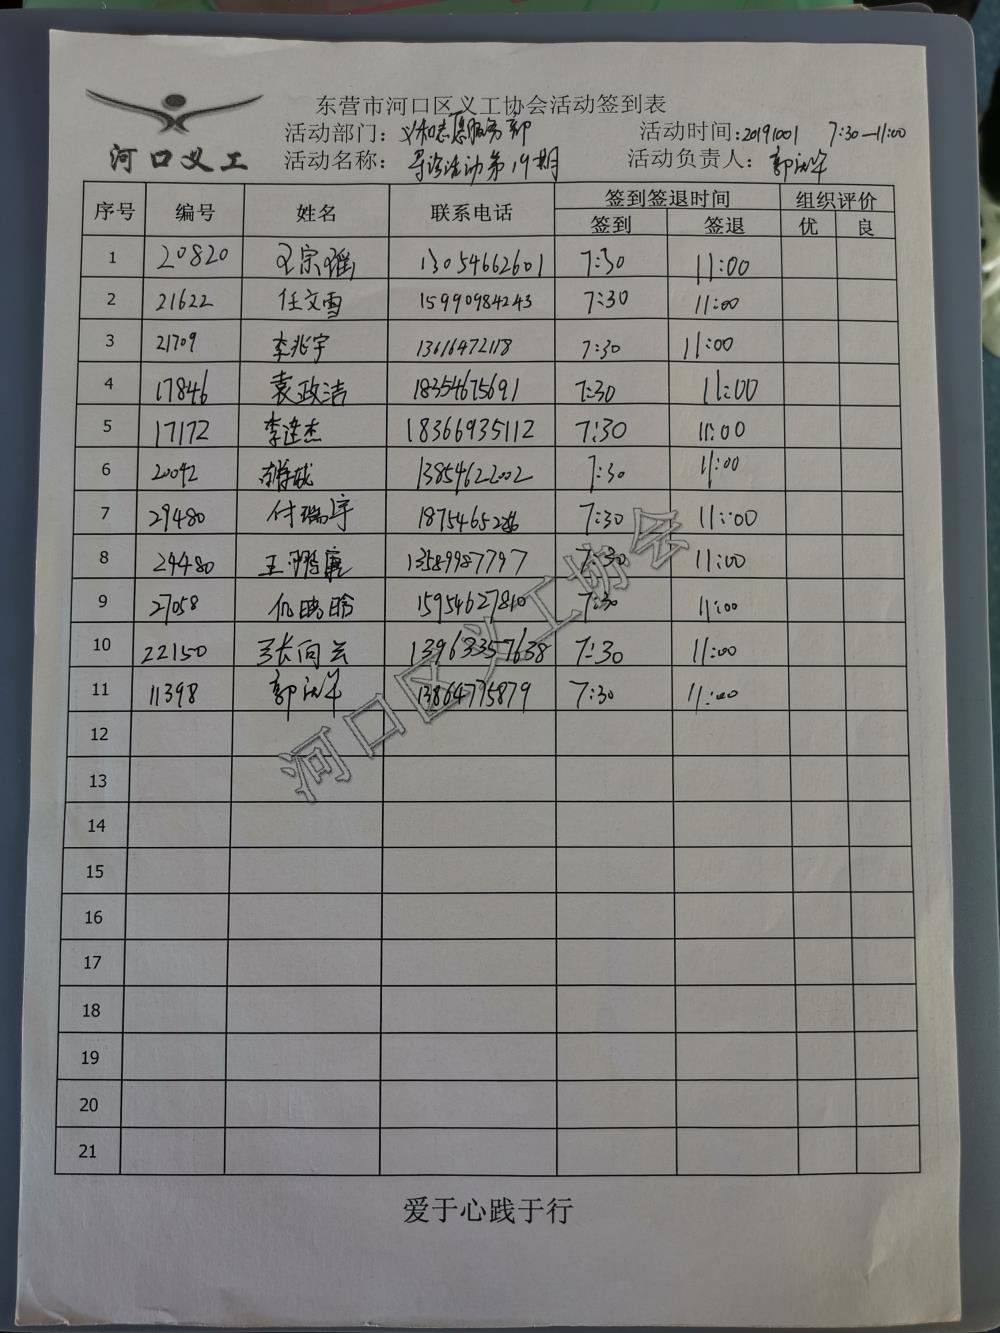 东营市河口区义工协会活动签到表
活动部门：义和志愿服务部 活动时间：20191001 7:30—11:00
河口义工
活动名称：导诊活动第19期 活动负责人：郭
序号 编号 姓名 联系电话 签到签退时间 组织评价
签到 签退 优 良
1 20820 王宗瑶 13054662601 7:30 11:00
2 21622 任文雪 15990984243 7:30 11:00
3 21709 李兆宇 13616472118 7:30 11:00
4 17846 袁政洁 18354675691 7:30 11:00
5 17172 李连杰 18366935112 7:30 11:00
6 20092 13854622002 7:30 11:00
7 29480 付瑞宇 7:30 11:00
8 29480 王鹏 13589987797 7:30 11:00
9 27058 15954627810 7:30 11:00
10 22150 张向云 13963357638 7:30 11:00
11 11398 郭 13864775879 7:30 11:00
12
13
14
15
16
17
18
19
20
21
河口区义工协会
爱于心践于行